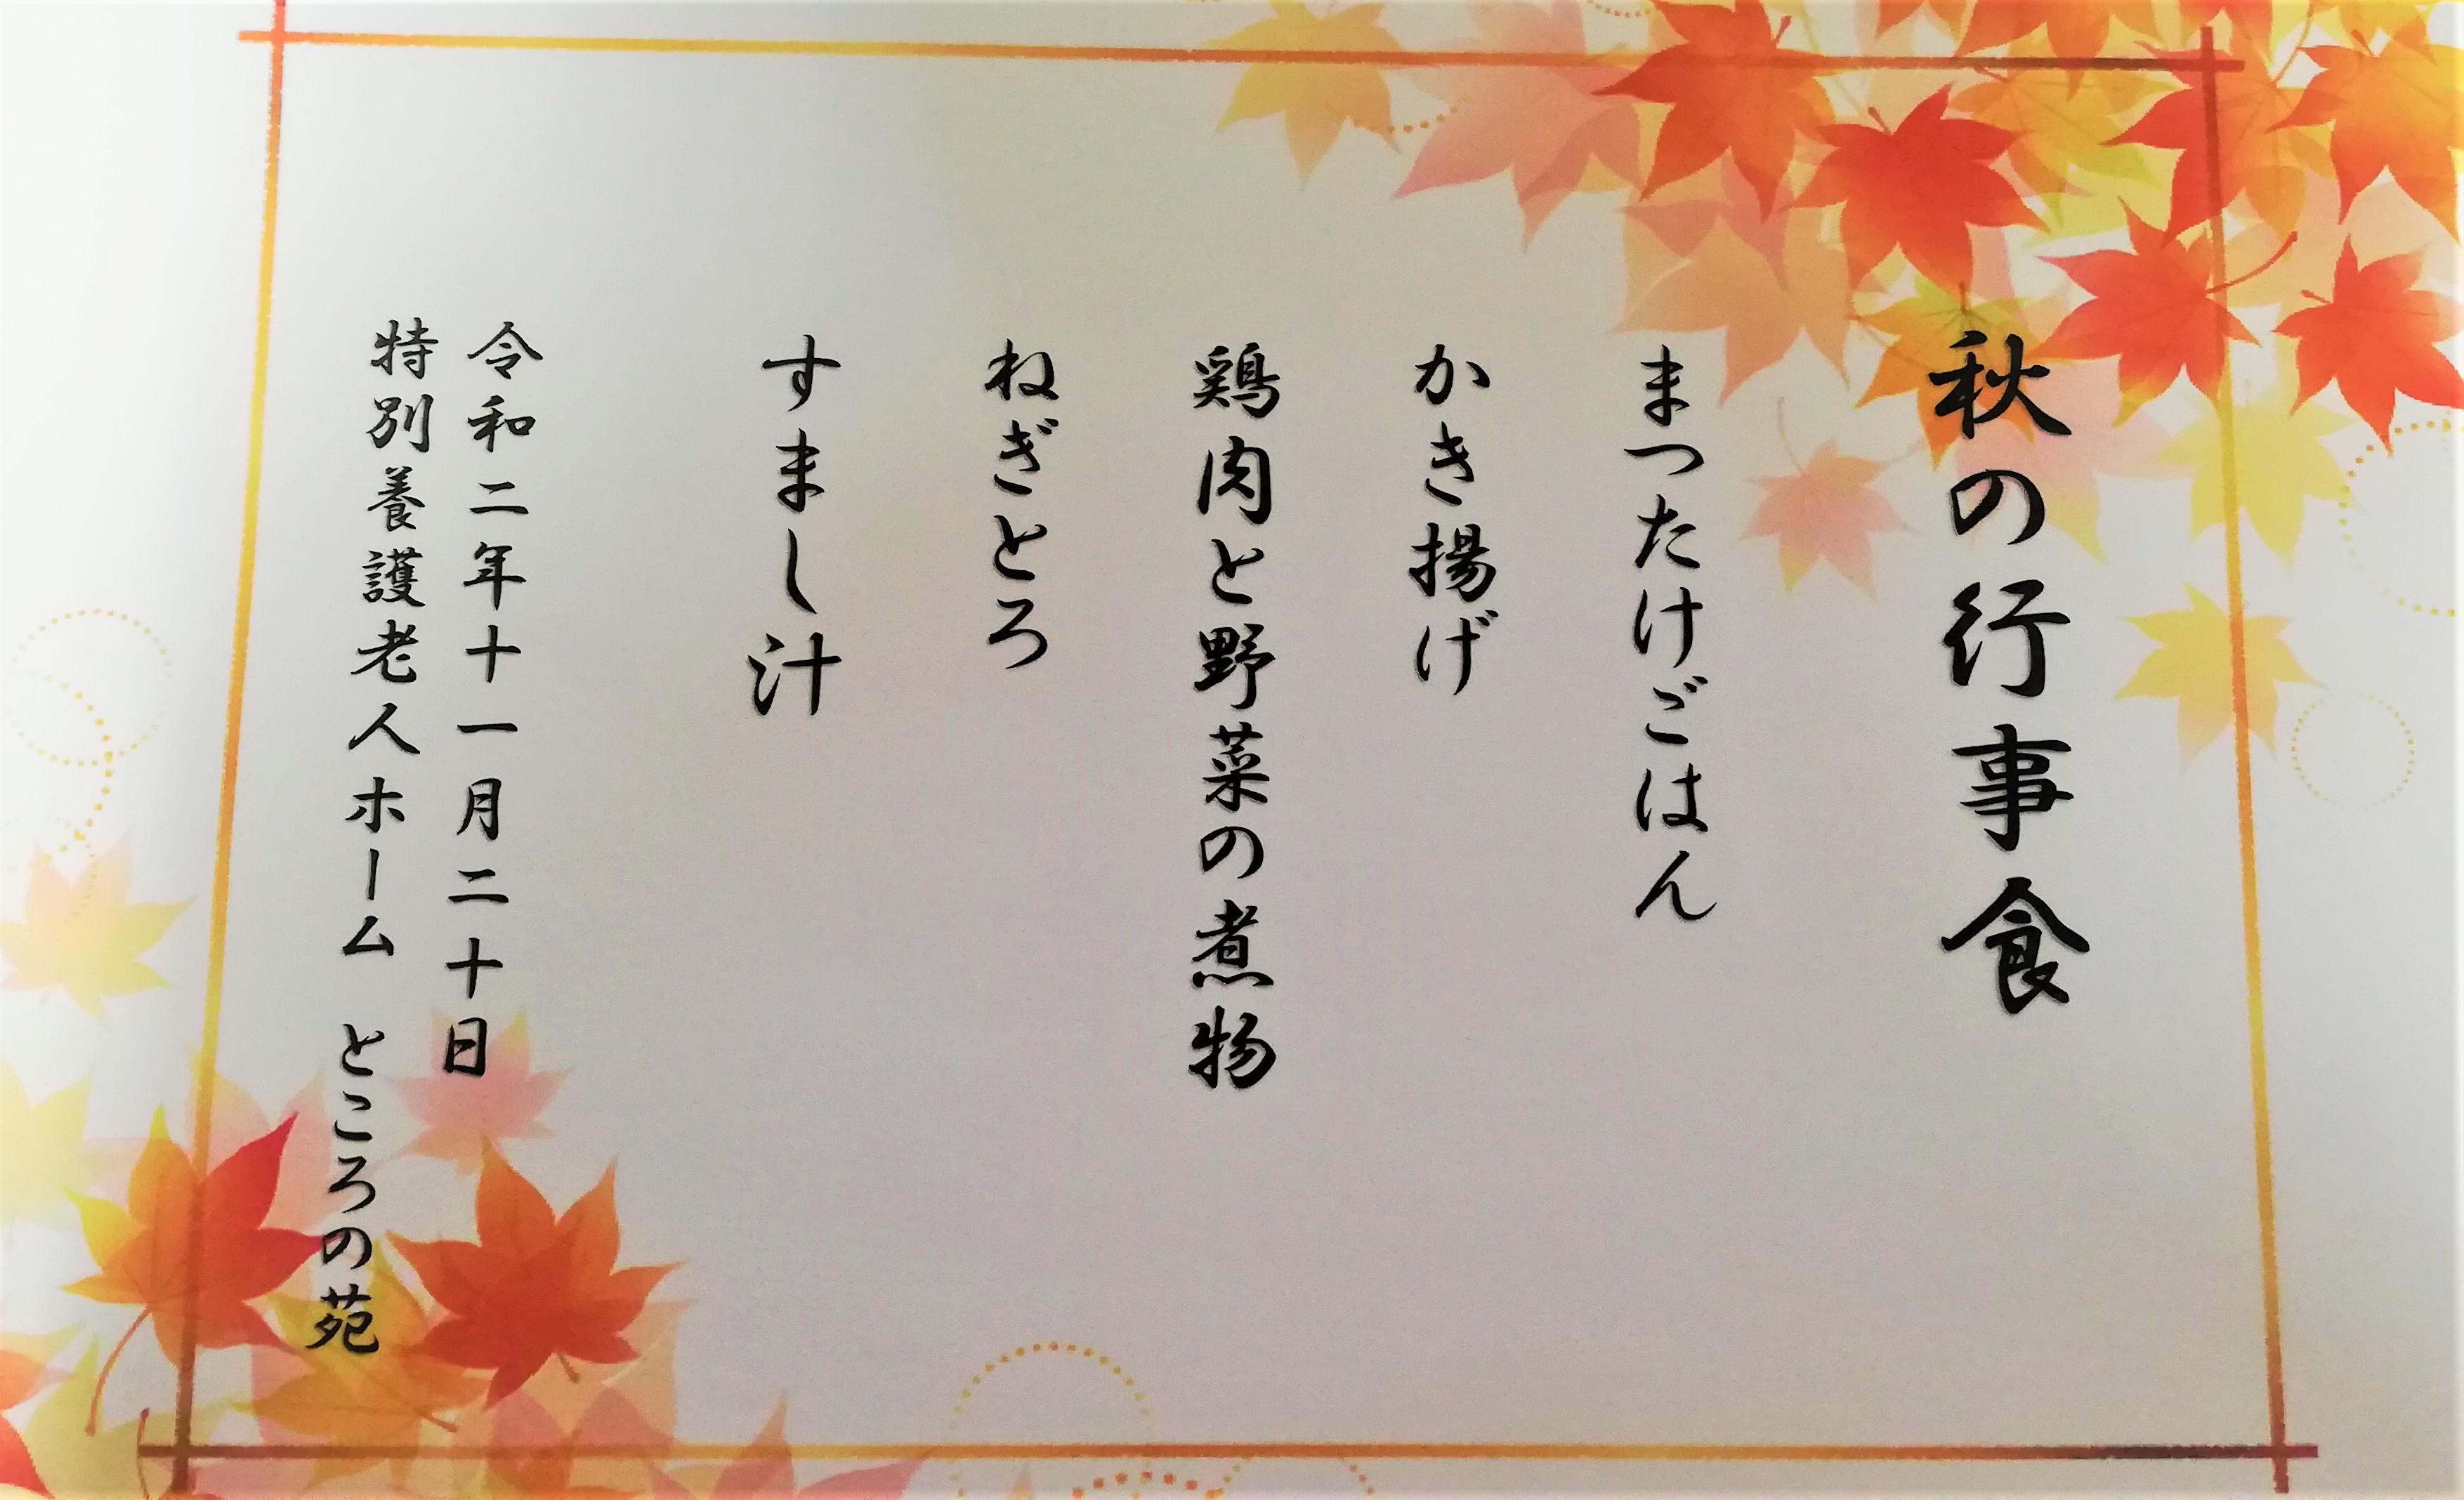 秋の行事食
まつたけごはん
かき揚げ
鶏肉と野菜の煮物
ねぎとろ
すまし汁
令和二年十一月二十日
特別養護老人ホーム ところの苑